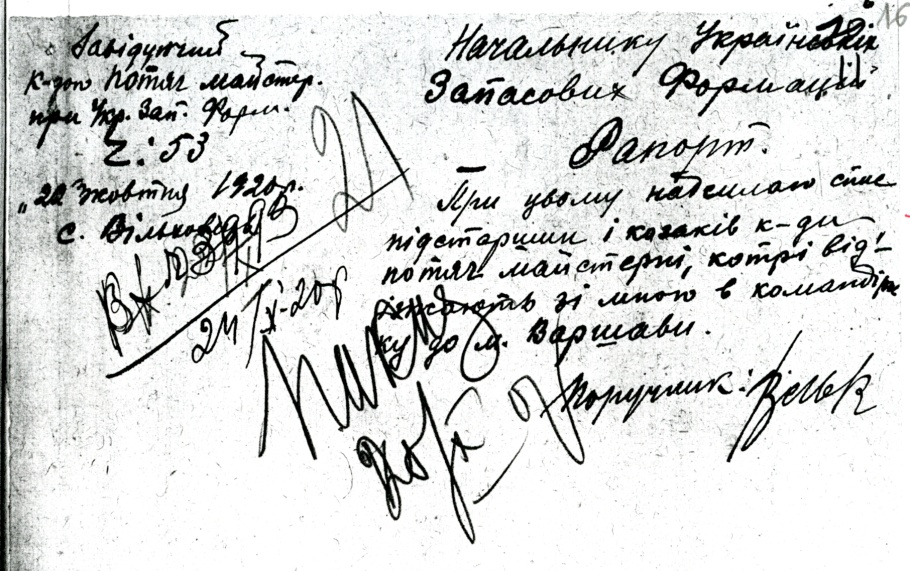 16
Завідуючий
к-дою Потяг майстер.
при Укр. Зап. Форм.
Ч: 53
"22" жовтня 1920 р.
с. Вільховець
Начальнику Українських
Запасових Формацій
Рапорт.
При цьому надсилаю спис
підстаршин і козаків к-ди
потяг майстерні, котрі від'ї-
зжають зі мною в командіров-
ку до м. Варшави.
Поручник:
21
24/X-20 р